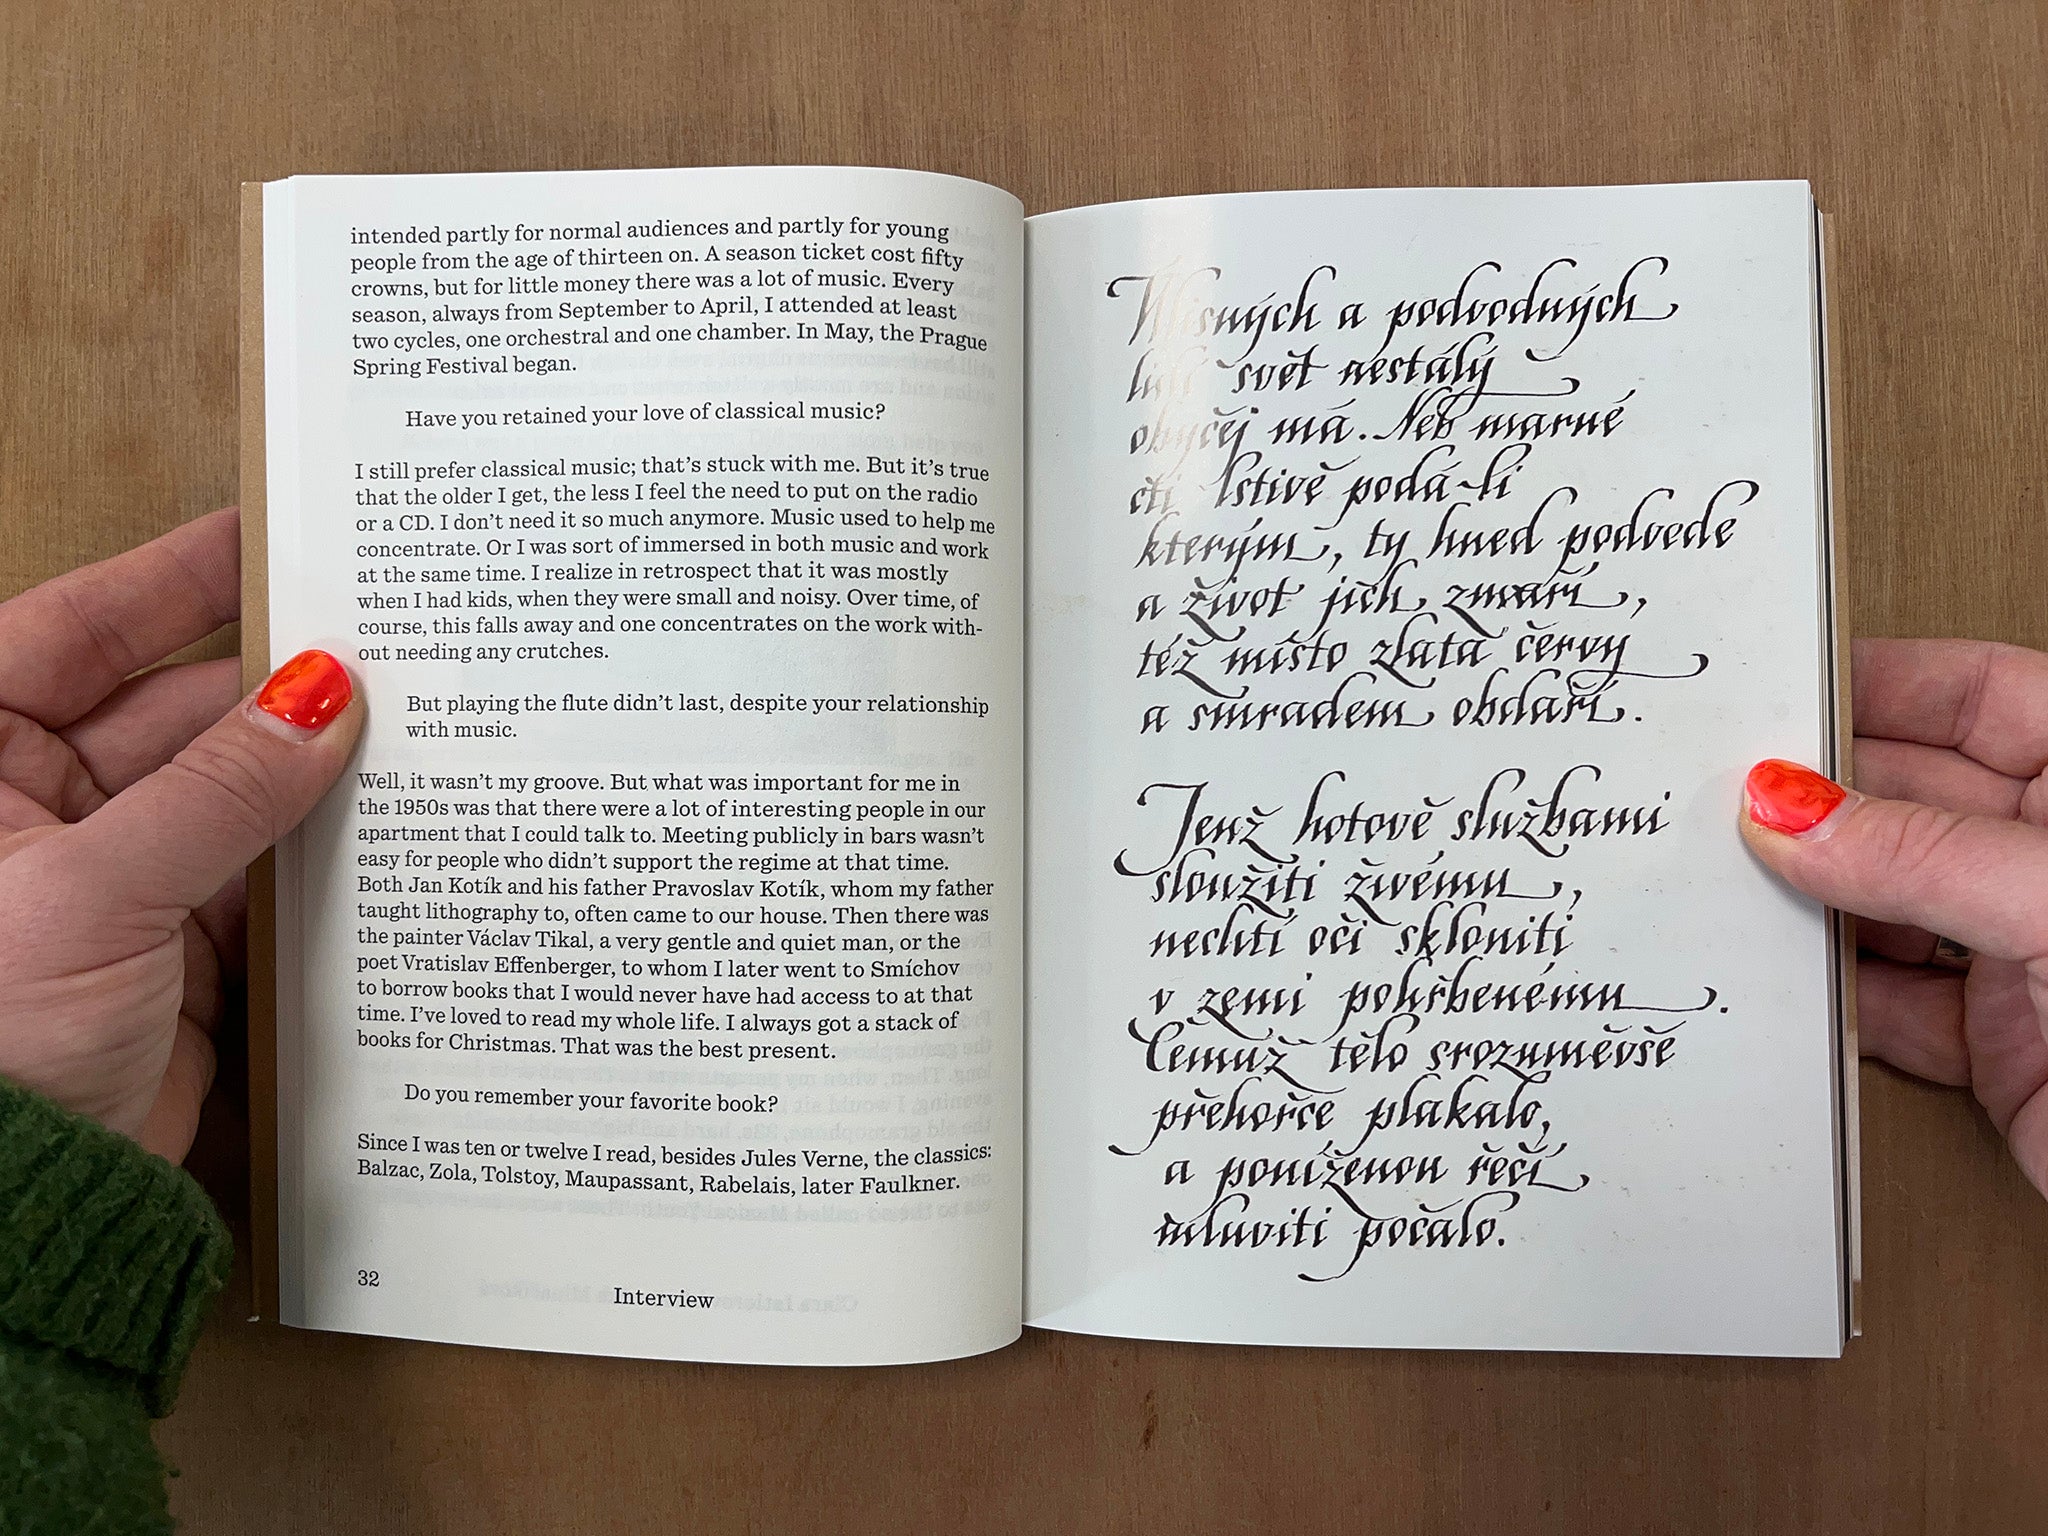 intended partly for normal audiences and partly for young
people from the age of thirteen on. A season ticket cost fifty
crowns, but for little money there was a lot of music. Every
season, always from September to April, I attended at least
two cycles, one orchestral and one chamber. In May, the Prague
Spring Festival began.
Have you retained your love of classical music?
I still prefer classical music; that's stuck with me. But it's true
that the older I get, the less I feel the need to put on the radio
or a CD. I don't need it so much anymore. Music used to help me
concentrate. Or I was sort of immersed in both music and work
at the same time. I realize in retrospect that it was mostly
when I had kids, when they were small and noisy. Over time, of
course, this falls away and one concentrates on the work with-
out needing any crutches.
But playing the flute didn't last, despite your relationship
with music.
Well, it wasn't my groove. But what was important for me in
the 1950s was that there were a lot of interesting people in our
apartment that I could talk to. Meeting publicly in bars wasn't
easy for people who didn't support the regime at that time.
Both Jan Kotík and his father Pravoslav Kotík, whom my father
taught lithography to, often came to our house. Then there was
the painter Václav Tikal, a very gentle and quiet man, or the
poet Vratislav Effenberger, to whom I later went to Smíchov
to borrow books that I would never have had access to at that
time. I've loved to read my whole life. I always got a stack of
books for Christmas. That was the best present.
Do you remember your favorite book?
Since I was ten or twelve I read, besides Jules Verne, the classics:
Balzac, Zola, Tolstoy, Maupassant, Rabelais, later Faulkner.
32
Interview
a podvodných
svět nestálý
obyčej má. Neb marné
cti lstivě podá-li
kterým, ty hned podvede
a život jich zmaří,
též místo zlata červy
a smradem obdaří.
Jenž hotově službami
sloužiti živému,
nechtí oči skloniti
v zemi pohřbenému.
Čemuž tělo srozuměvše
přehořce plakalo,
a poníženou řečí
mluviti počalo.